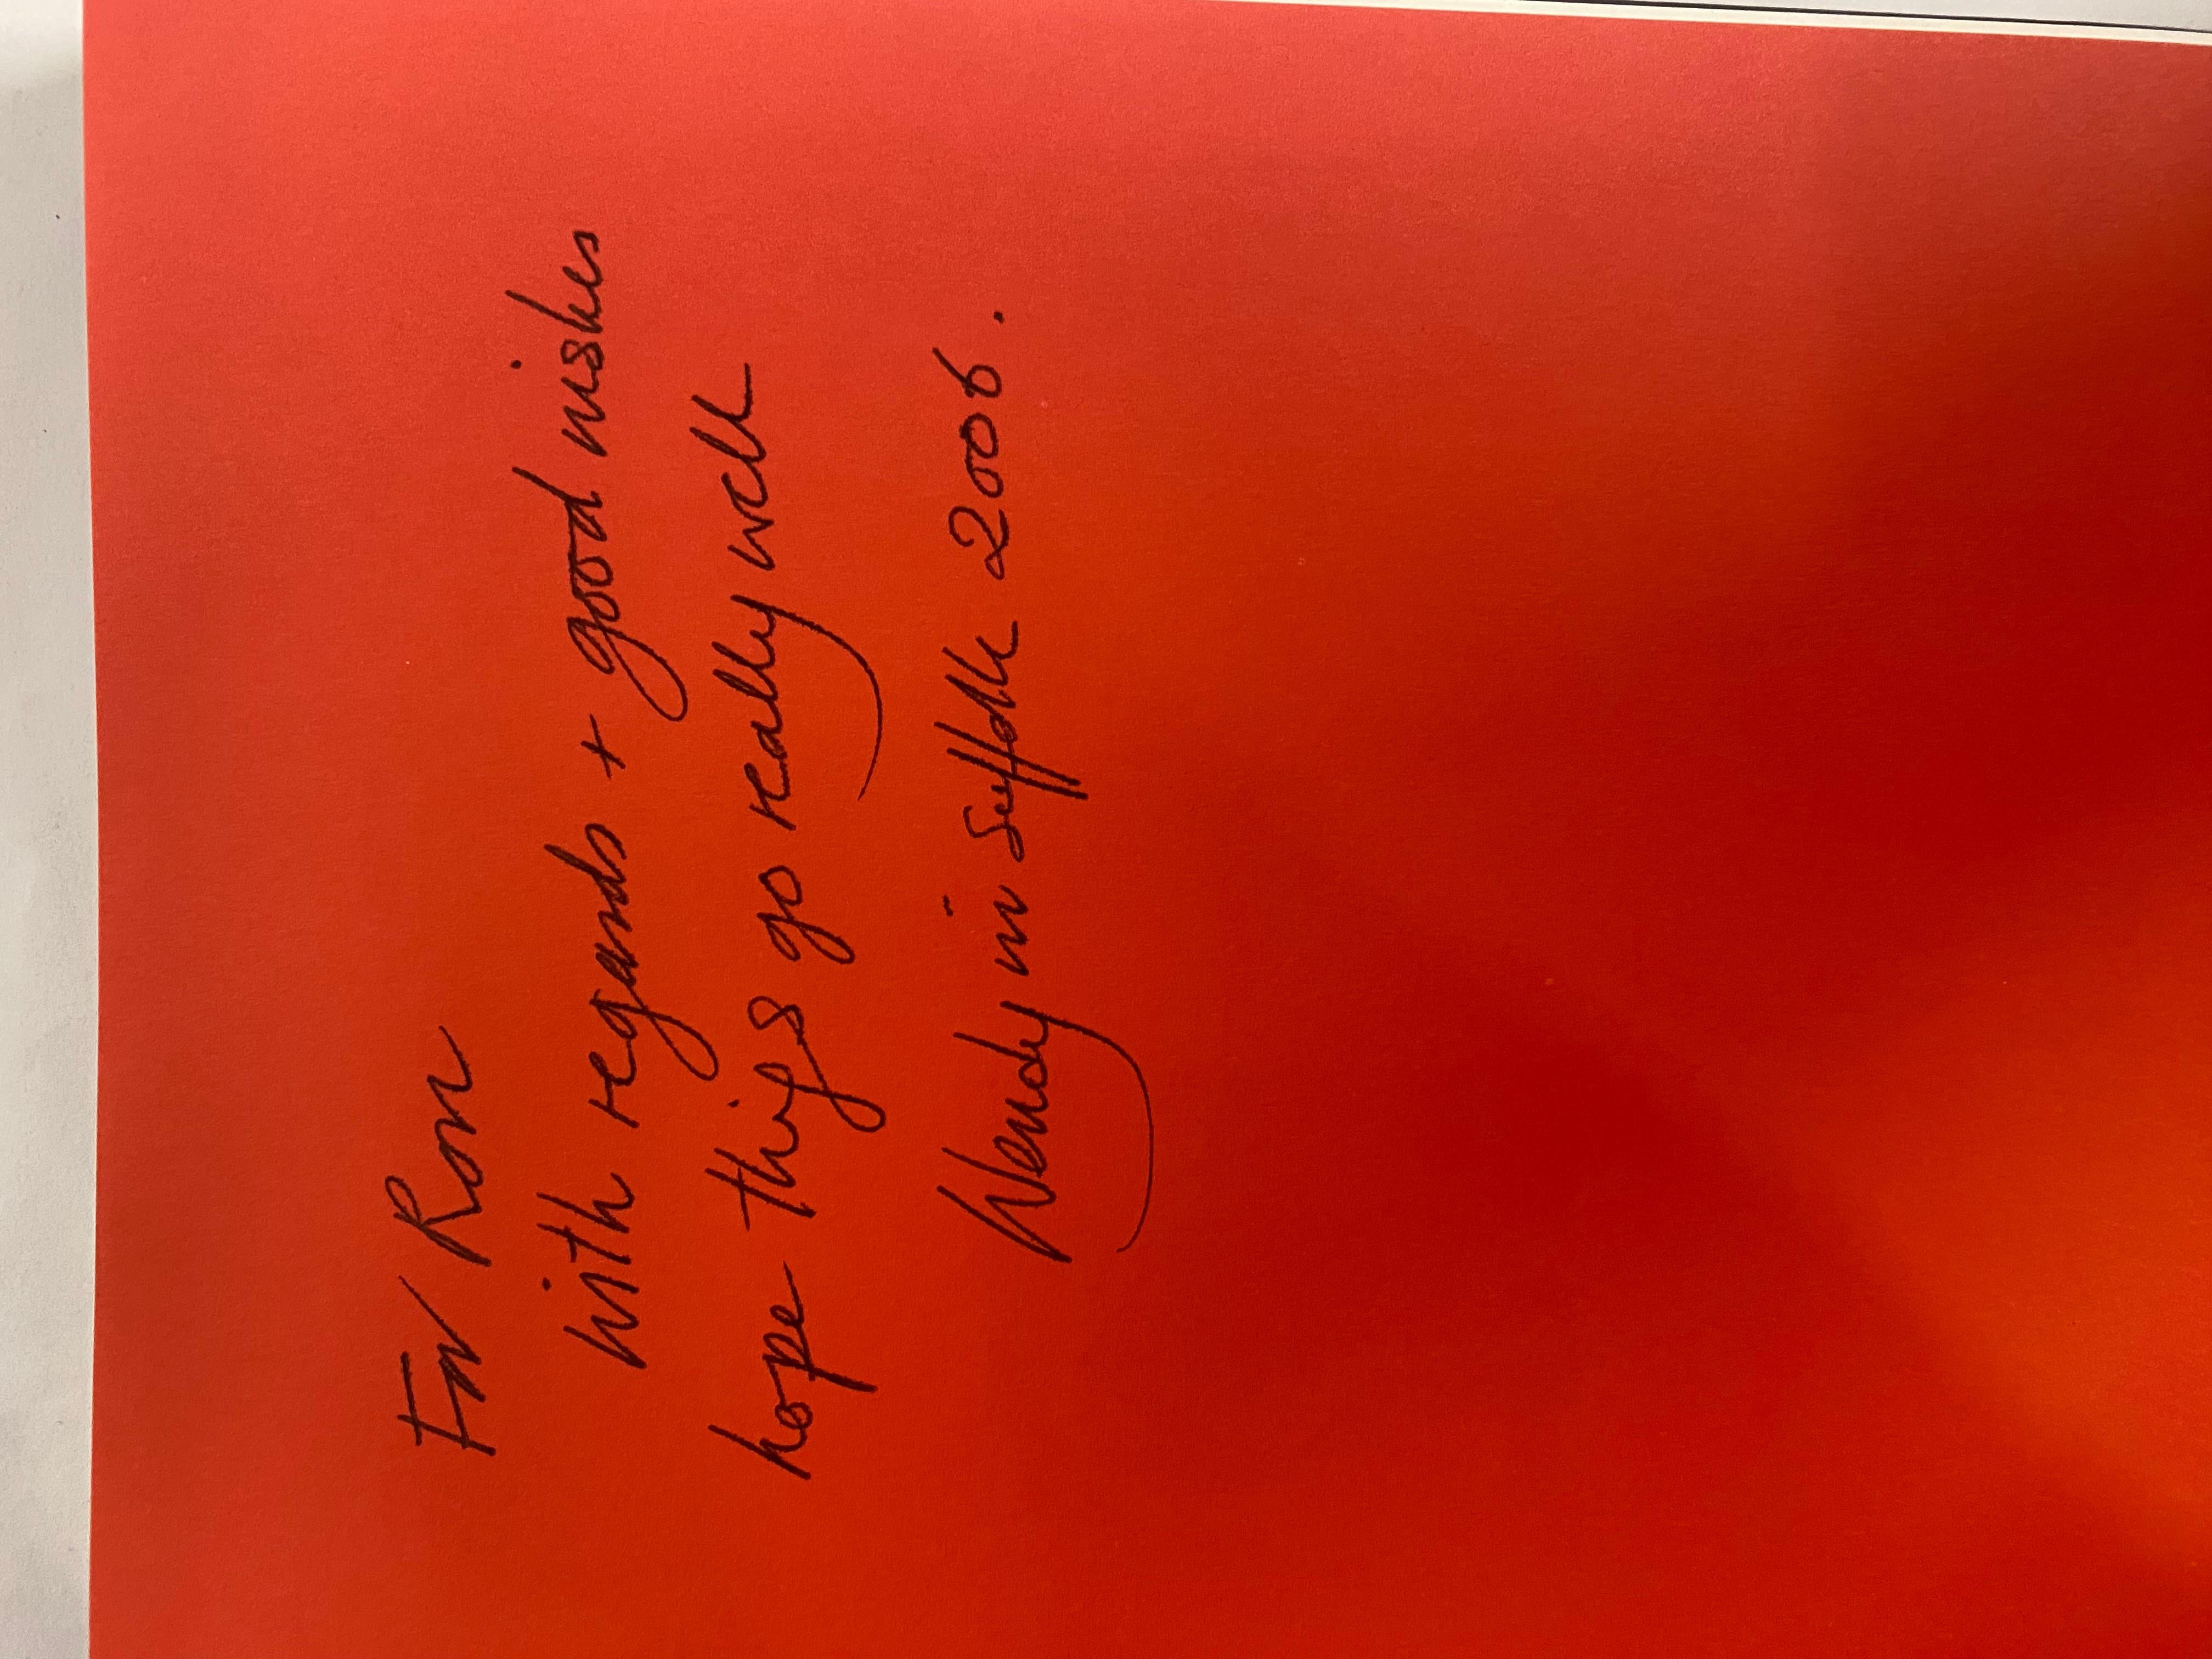 For Ron
with regards + good wishes
hope things go really well
Wendy in Suffolk 2006.